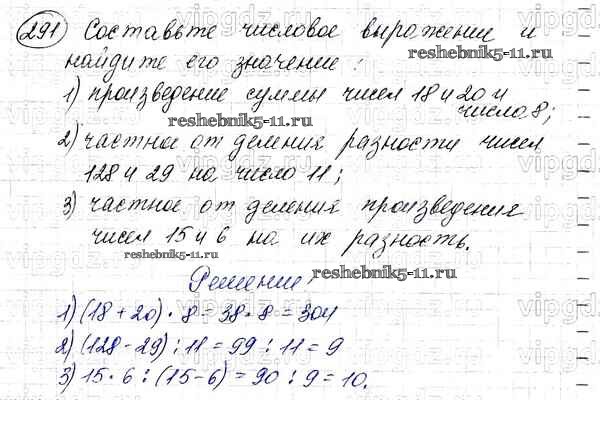 291 Составьте числовое выражение и
reshebnik5-11.ru
найдите его значение:
1) произведение суммы чисел 18 и 20 и
числа 8;
reshebnik5-11.ru
2) частное от деления разности чисел
128 и 29 на число 11;
3) частное от деления произведения
чисел 15 и 6 на их разность.
reshebnik5-11.ru
Решение:
reshebnik5-11.ru
1) (18 + 20) · 8 = 38 · 8 = 304
2) (128 - 29) : 11 = 99 : 11 = 9
3) 15 · 6 : (15 - 6) = 90 : 9 = 10.